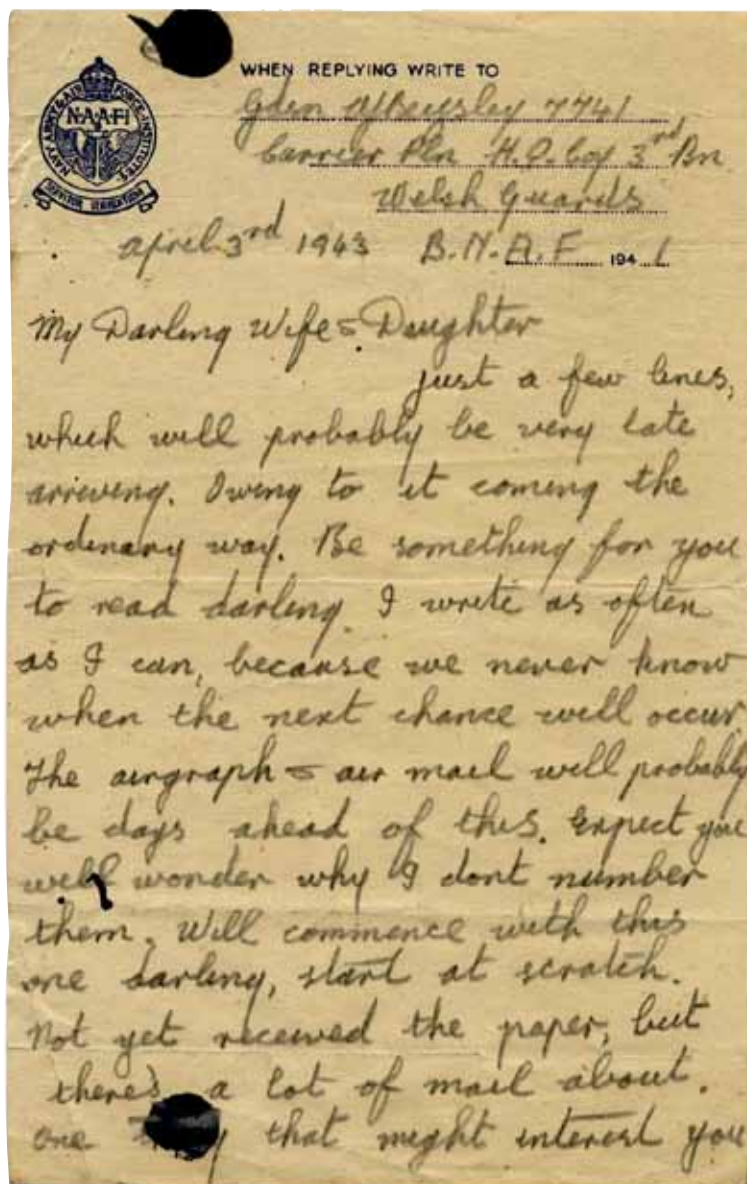 WHEN REPLYING WRITE TO
NAVY, ARMY & AIR FORCE INSTITUTES
N·A·A·F·I
SERVITOR SERVIENTIUM
Gdsn 7741
Carrier Pln H.Q. Coy 3rd Bn
Welsh Guards
April 3rd 1943 B.N.A.F 194 1
My Darling Wife & Daughter
just a few lines,
which will probably be very late
arriving. Owing to it coming the
ordinary way. Be something for you
to read darling. I write as often
as I can, because we never know
when the next chance will occur
The airgraph & air mail will probably
be days ahead of this. Expect you
will wonder why I dont number
them. Will commence with this
one darling, start at scratch.
Not yet received the paper, but
theres a lot of mail about.
One that might interest you